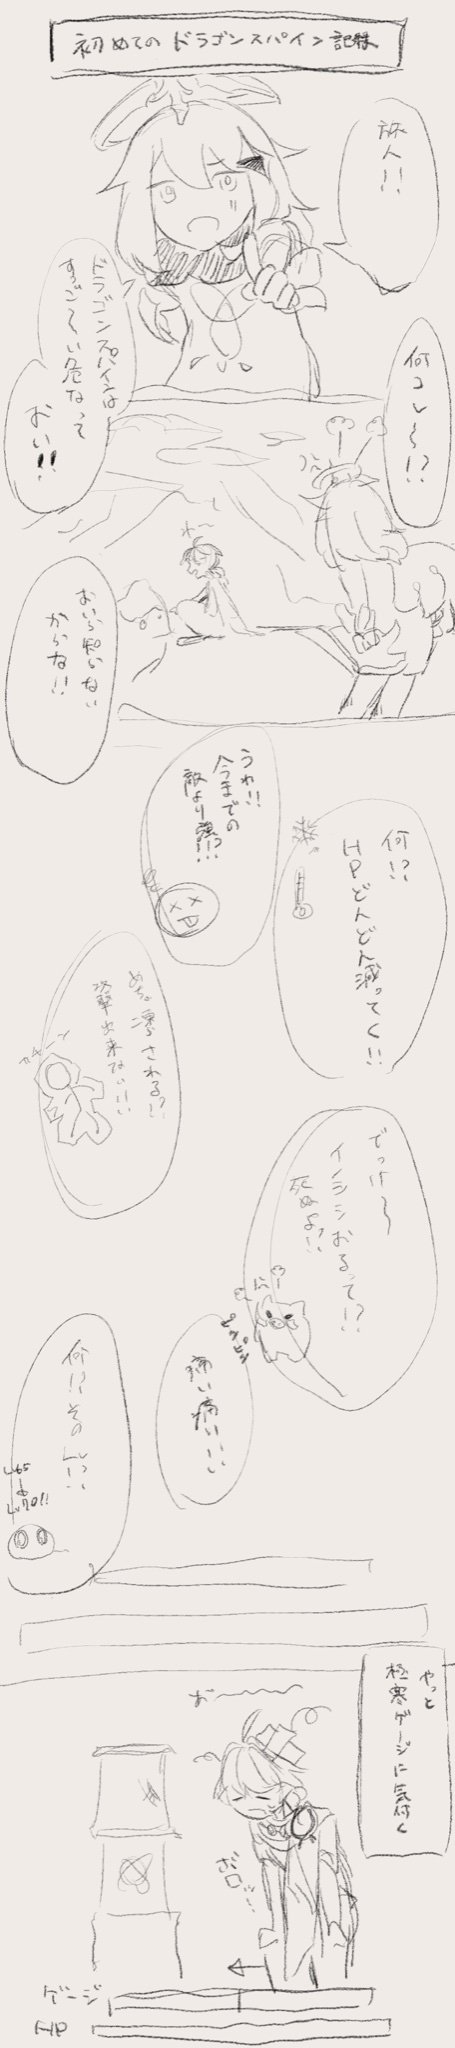 初めてのドラゴンスパイン記録
旅人!!
ドラゴンスパインは
すご〜い危なって
おい!!
何コレ〜!?
わ〜
おいら知らない
からな!!
うわ!!
今までの
敵より強!?!
何!?
HPどんどん減ってく!!
めちゃ凍らされる!?
攻撃出来ない!!!
カキーン
でっけ〜
イノシシおるって!?
死ぬよ!?
ピンピン
痛い痛いい
何!?その
Lv!?!
Lv65
Lv70!!
やっと
極寒ゲージに気付く
お〜
ボロッ…
ゲージ
HP